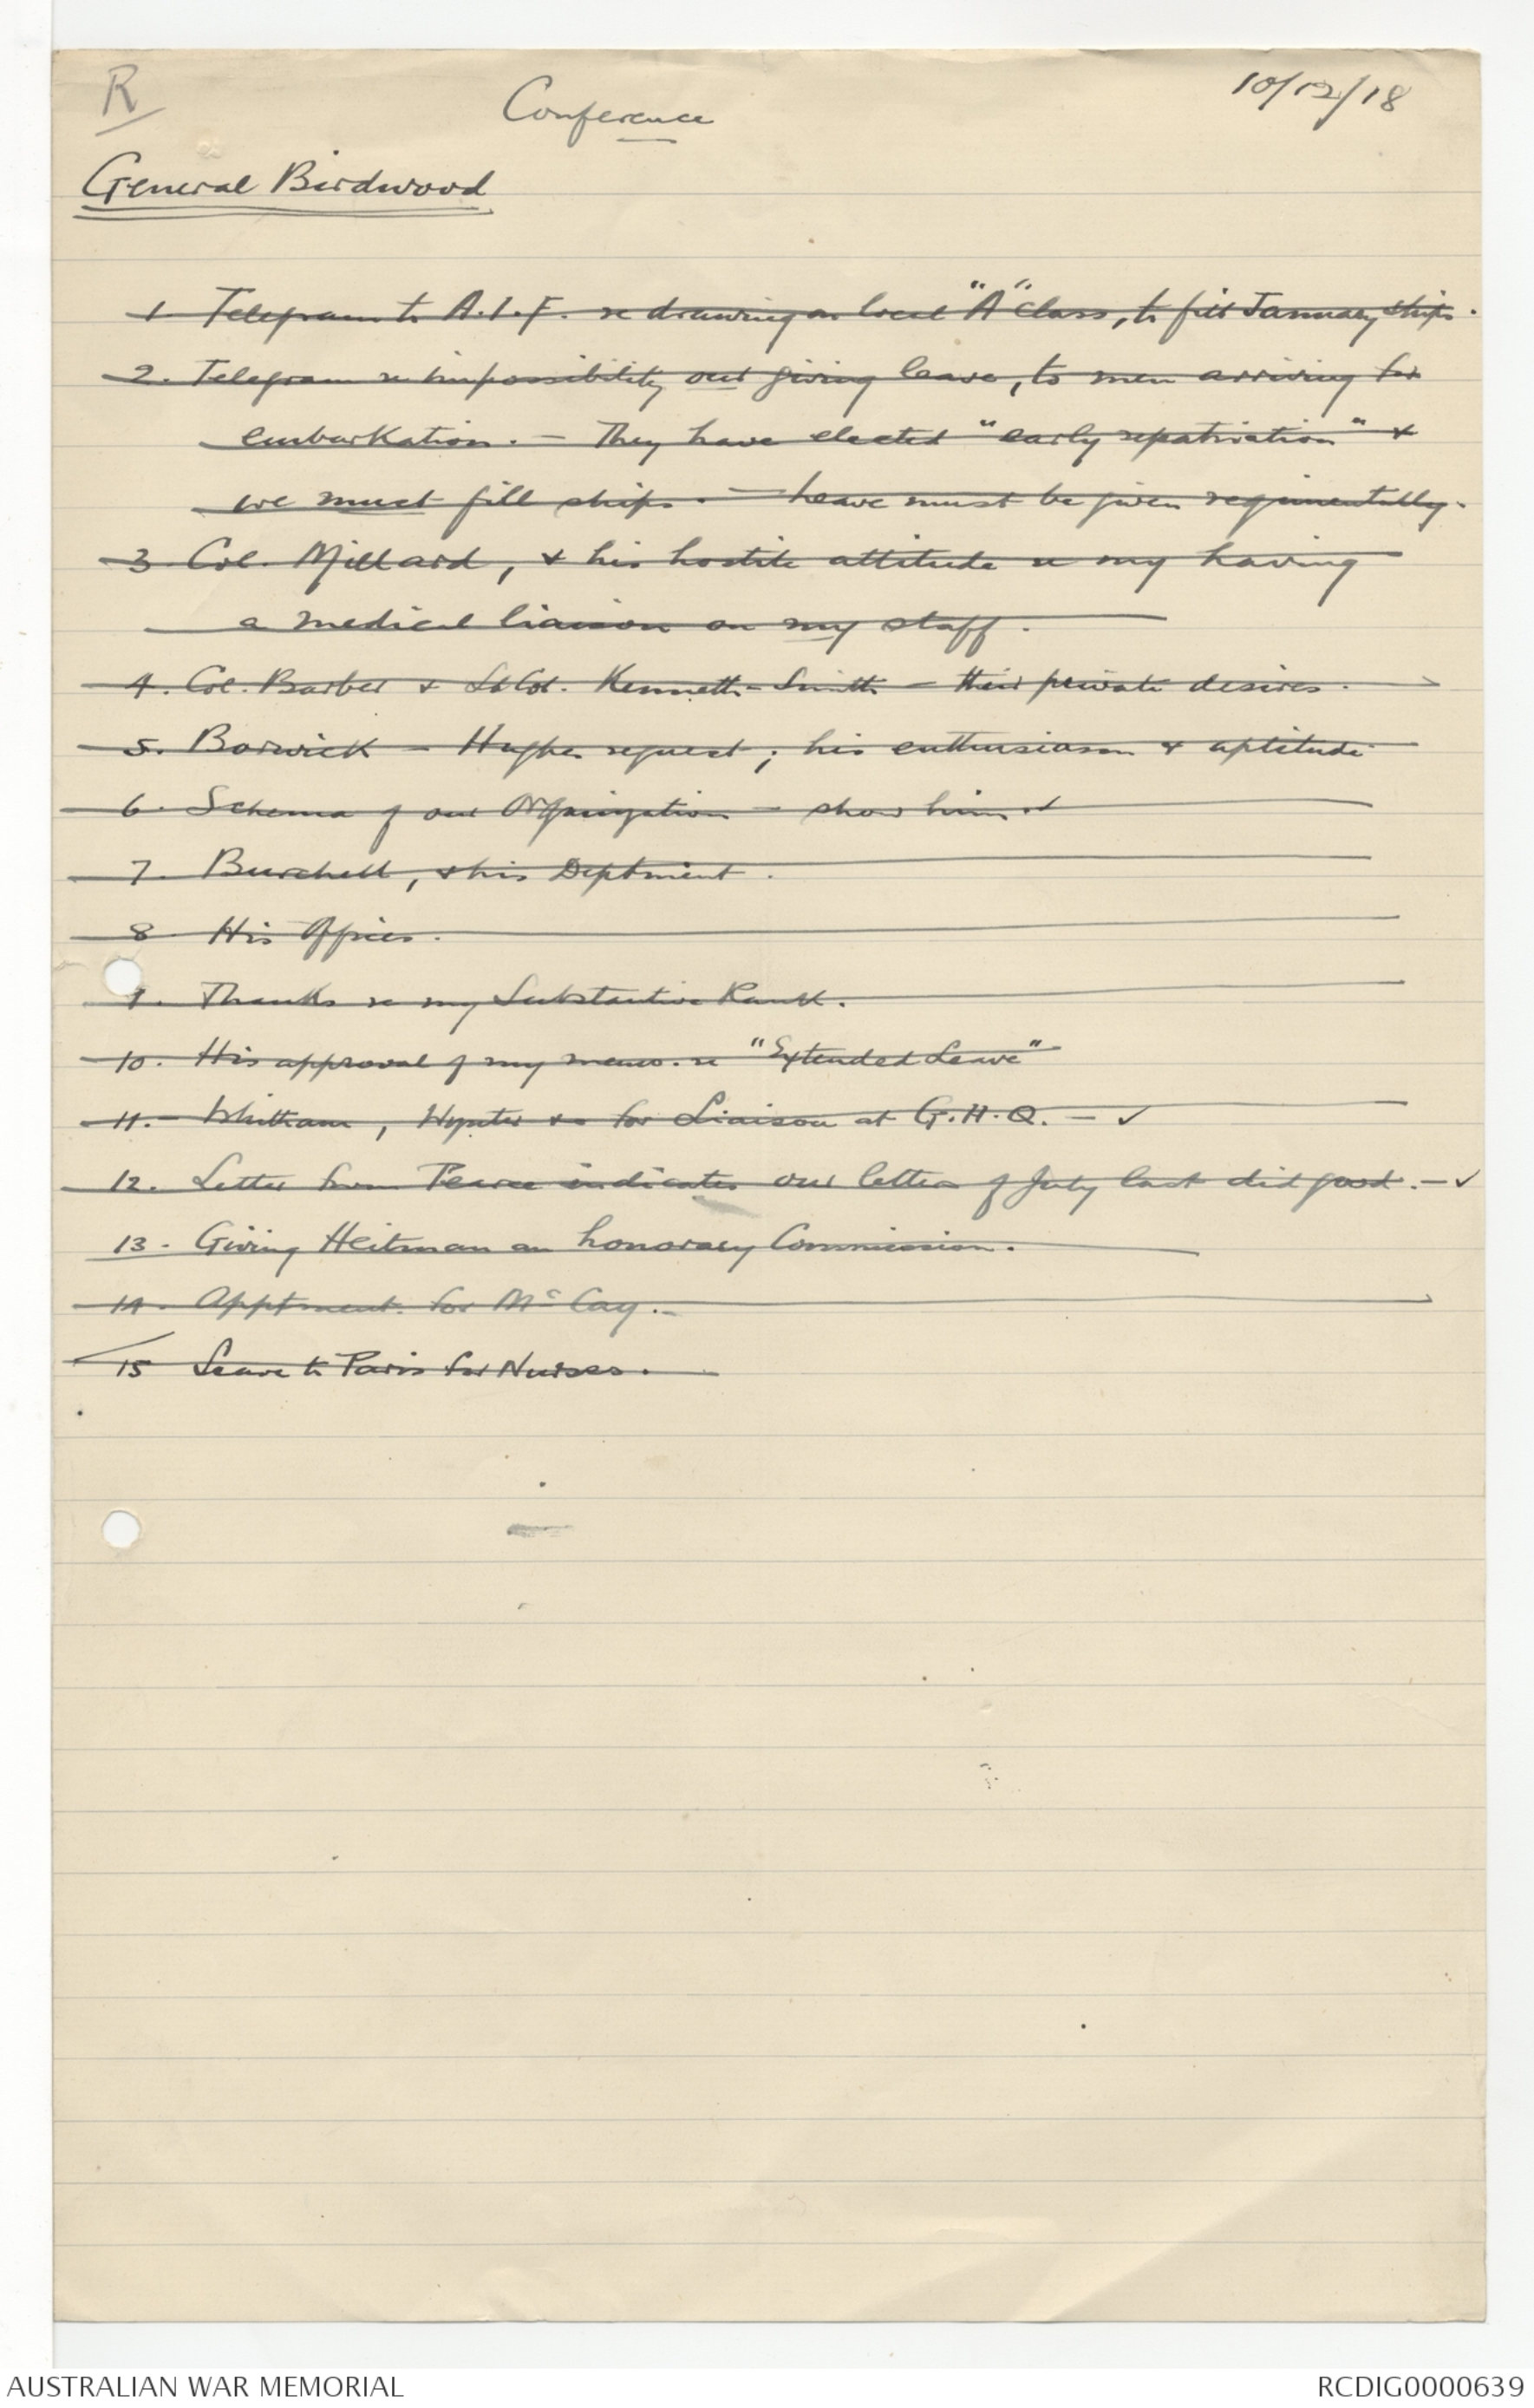 R
Conference
10/12/18
General Birdwood
1 Telegram to A.I.F. re drawing on local "A" Class, to fill January ships.
2. Telegram re impossibility our giving leave, to men arriving for
embarkation. — They have elected "early repatriation" &
we must fill ships. — Leave must be given regimentally.
3 Col. Millard, & his hostile attitude re my having
a medical liaison on my staff.
4. Col. Barber & Lt Col. Kenneth-Smith — their private desires.
5. Barwick — Hughes request; his enthusiasm & aptitude
6. Schema of our Organization — show him it
7. Burchell, & his Deptment.
8 His Offices.
9. Thanks re my Substantive Rank.
10. His approval of my memo. re "Extended Leave"
11. — Whitham, Wynter &c for Liaison at G.H.Q. — ✓
12. Letter from Pearce indicates our letter of July last did good. — ✓
13 - Giving Heitman an honorary Commission.
14. Apptment. for McCay. —
15 Leave to Paris for Nurses.
AUSTRALIAN WAR MEMORIAL
RCDIG0000639